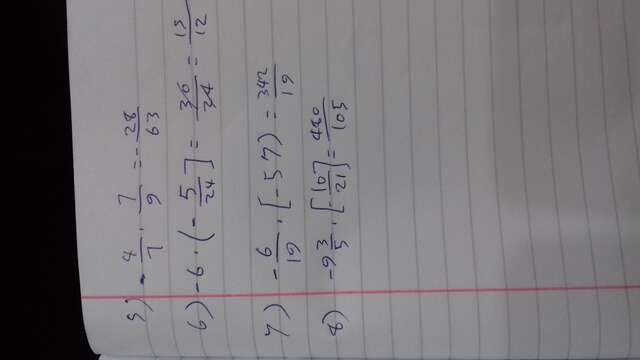 5) -4/7 · 7/9 = -28/63
6) -6 · (-5/24] = 30/24 = 15/12
7) -6/19 · [-57) = 342/19
8) -9 3/5 · [-10/21] = 480/105